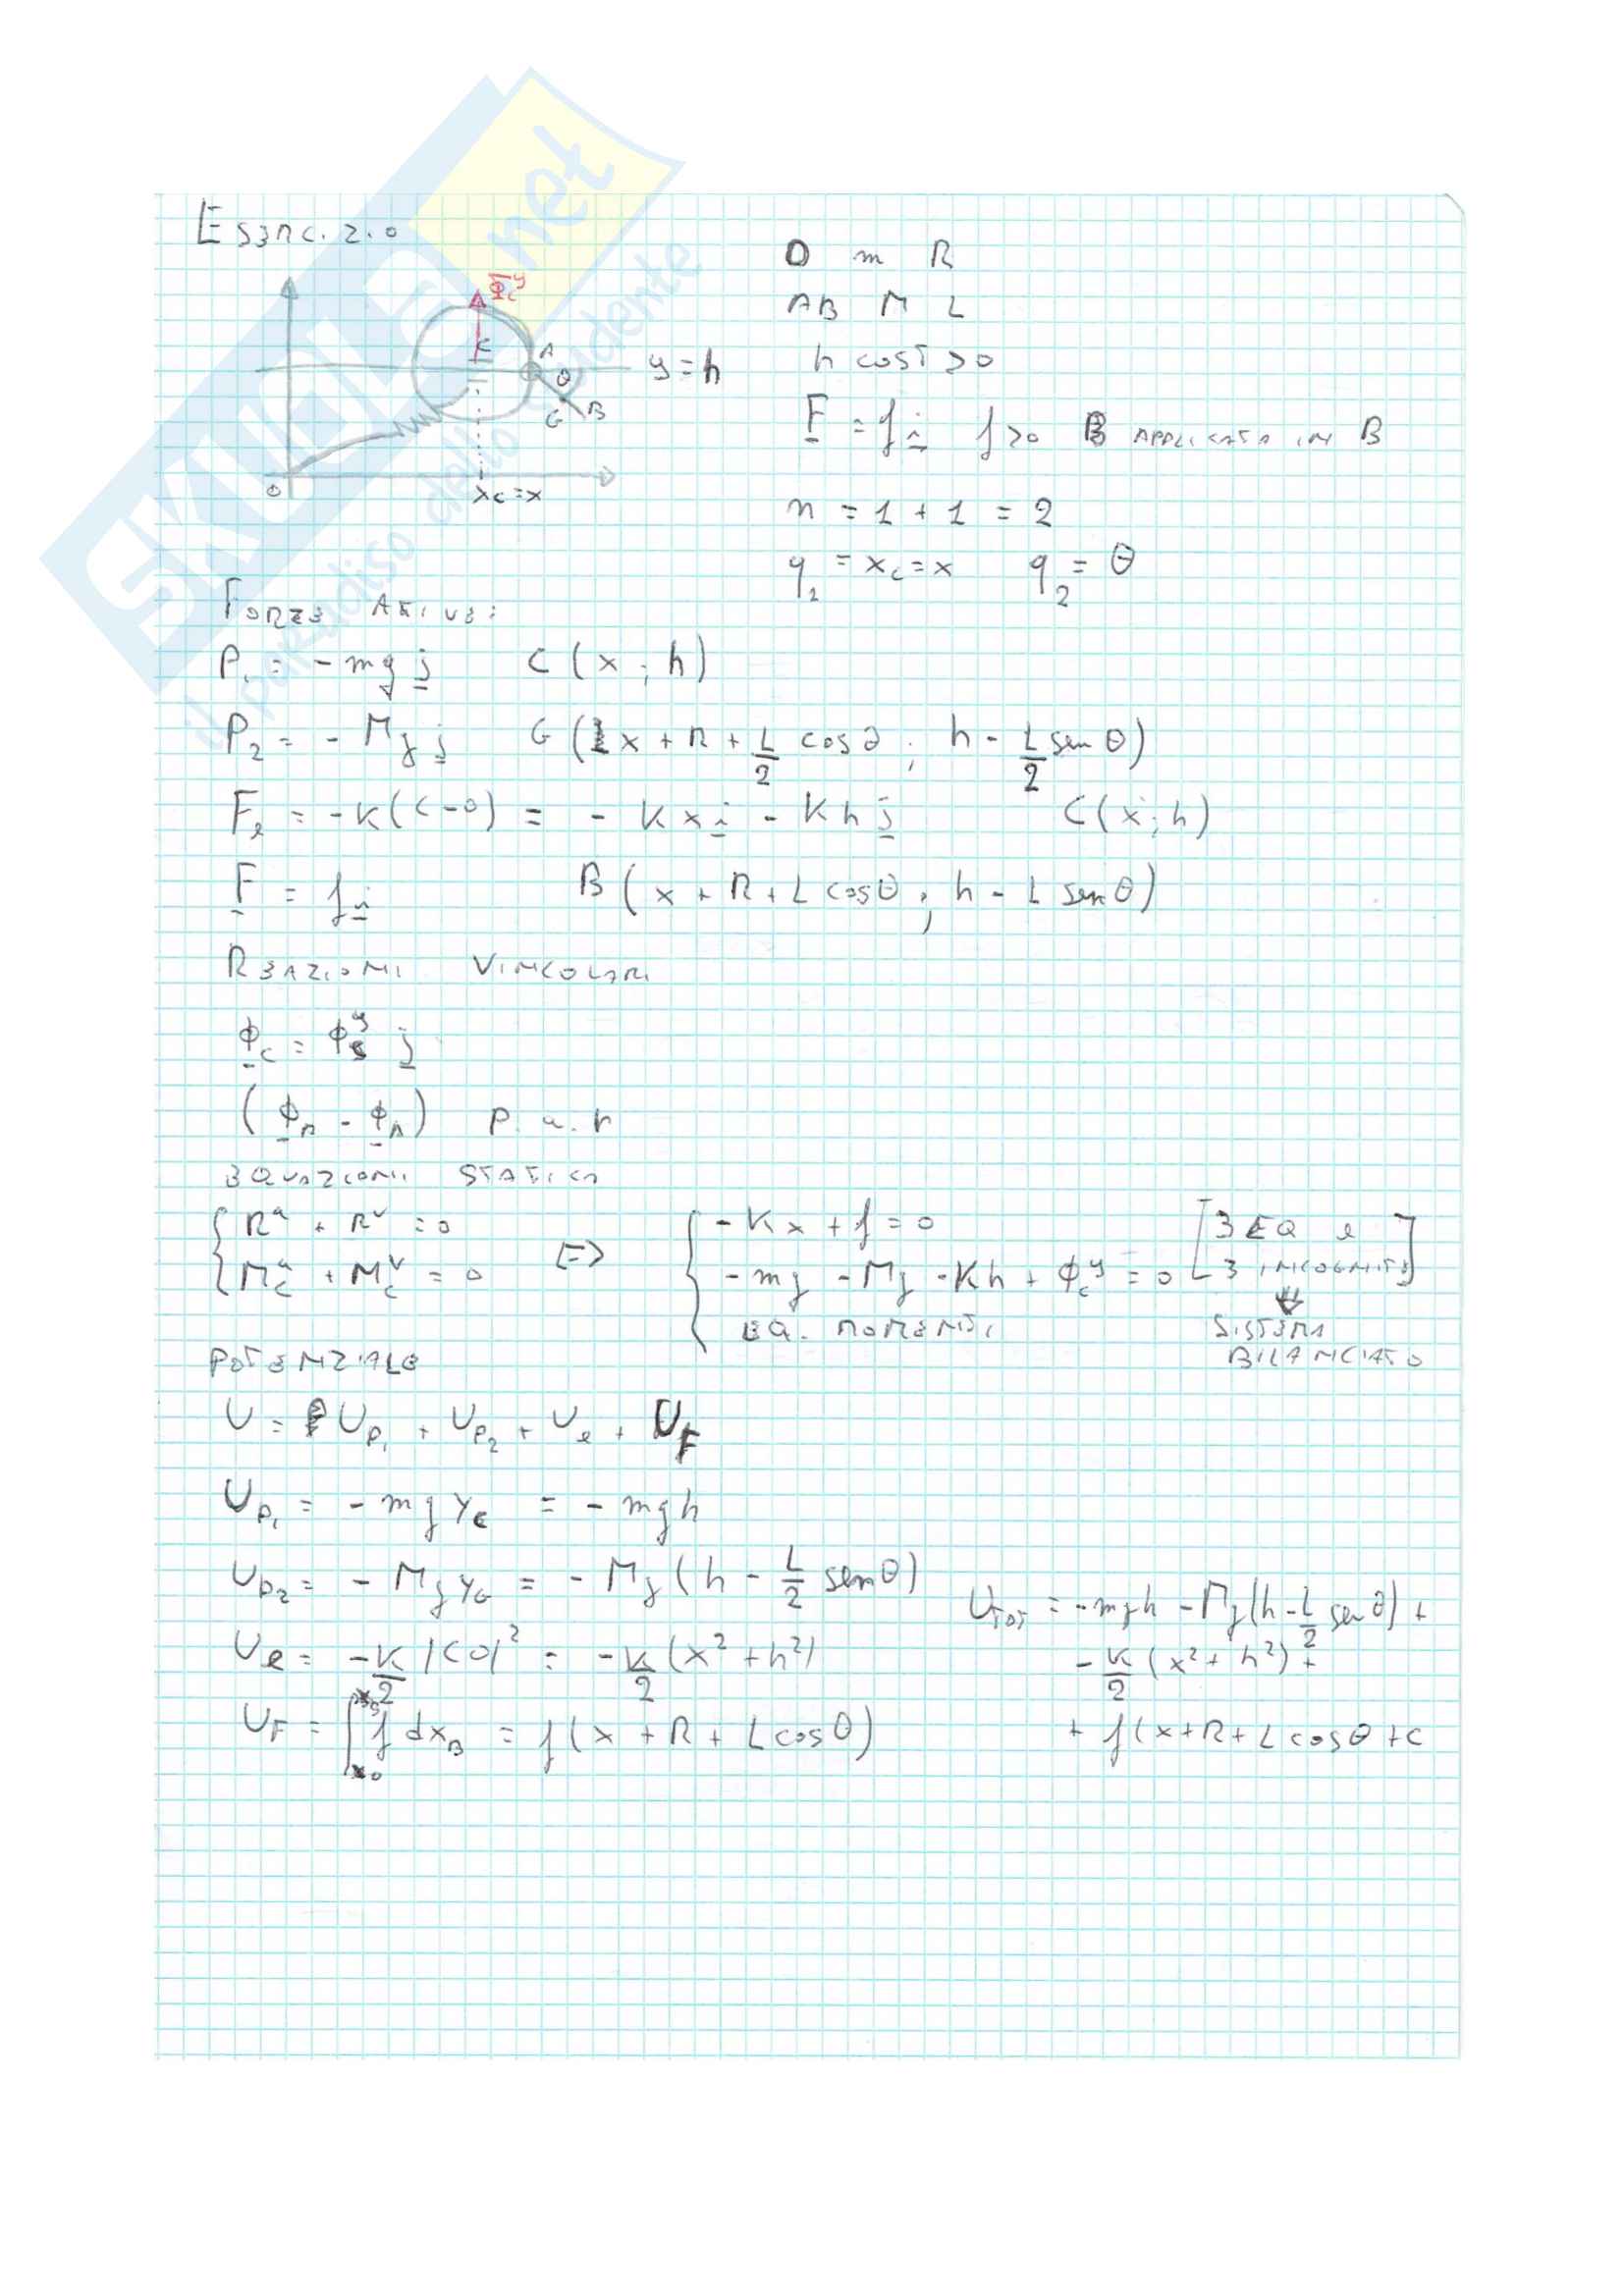 ESERC. 2.0
Φcʸ
C
A
θ
G
B
y = h
O
xc = x
O m R
AB M L
h cost > 0
F = f i f > 0 APPLICATA IN B
n = 1 + 1 = 2
q₁ = xc = x q₂ = θ
FORZE ATTIVE:
P₁ = - mg j C (x ; h)
P₂ = - Mg j G (x + R + L/2 cosθ ; h - L/2 senθ)
Fe = -K(C-O) = - Kx i - Kh j C(x ; h)
F = f i B (x + R + L cosθ ; h - L senθ)
REAZIONI VINCOLARI
Φc = Φcʸ j
(ΦA - ΦA) p. a. r
EQUAZIONI STATICA
{ Rᵃ + Rᵛ = 0
Mcᵃ + Mcᵛ = 0
=> { - Kx + f = 0
- mg - Mg - Kh + Φcʸ = 0
EQ. MOMENTI
[3 EQ e
3 INCOGNITE]
⇓
SISTEMA
BILANCIATO
POTENZIALE
U = Up₁ + Up₂ + Ue + UF
Up₁ = - mg yc = - mgh
Up₂ = - Mg yG = - Mg (h - L/2 senθ)
Ue = -K/2 |CO|² = -K/2 (x² + h²)
UF = ∫ f dxB = f(x + R + L cosθ)
UTOT = - mgh - Mg(h - L/2 senθ) +
- K/2 (x² + h²) +
+ f(x+R+L cosθ + C
SKUOLA.net
il paradiso dello studente